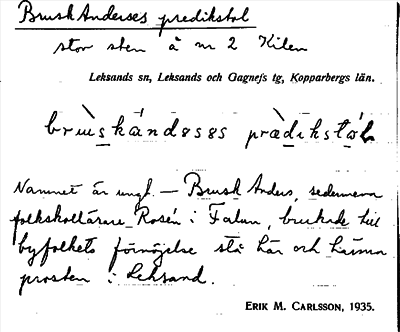 Brusk Anderses predikstol
stor sten å nr 2 Kilen
Leksands sn, Leksands och Gagnefs tg, Kopparbergs län.
bru̲s̲kàndəsəs præ̀dikstɷ̀l
Namnet är ungt. — Brusk Anders, sedermera
folkskollärare Rosén i Falun, brukade till
byfolkets förnöjelse stå här och härma
prosten i Leksand.
ERIK M. CARLSSON, 1935.